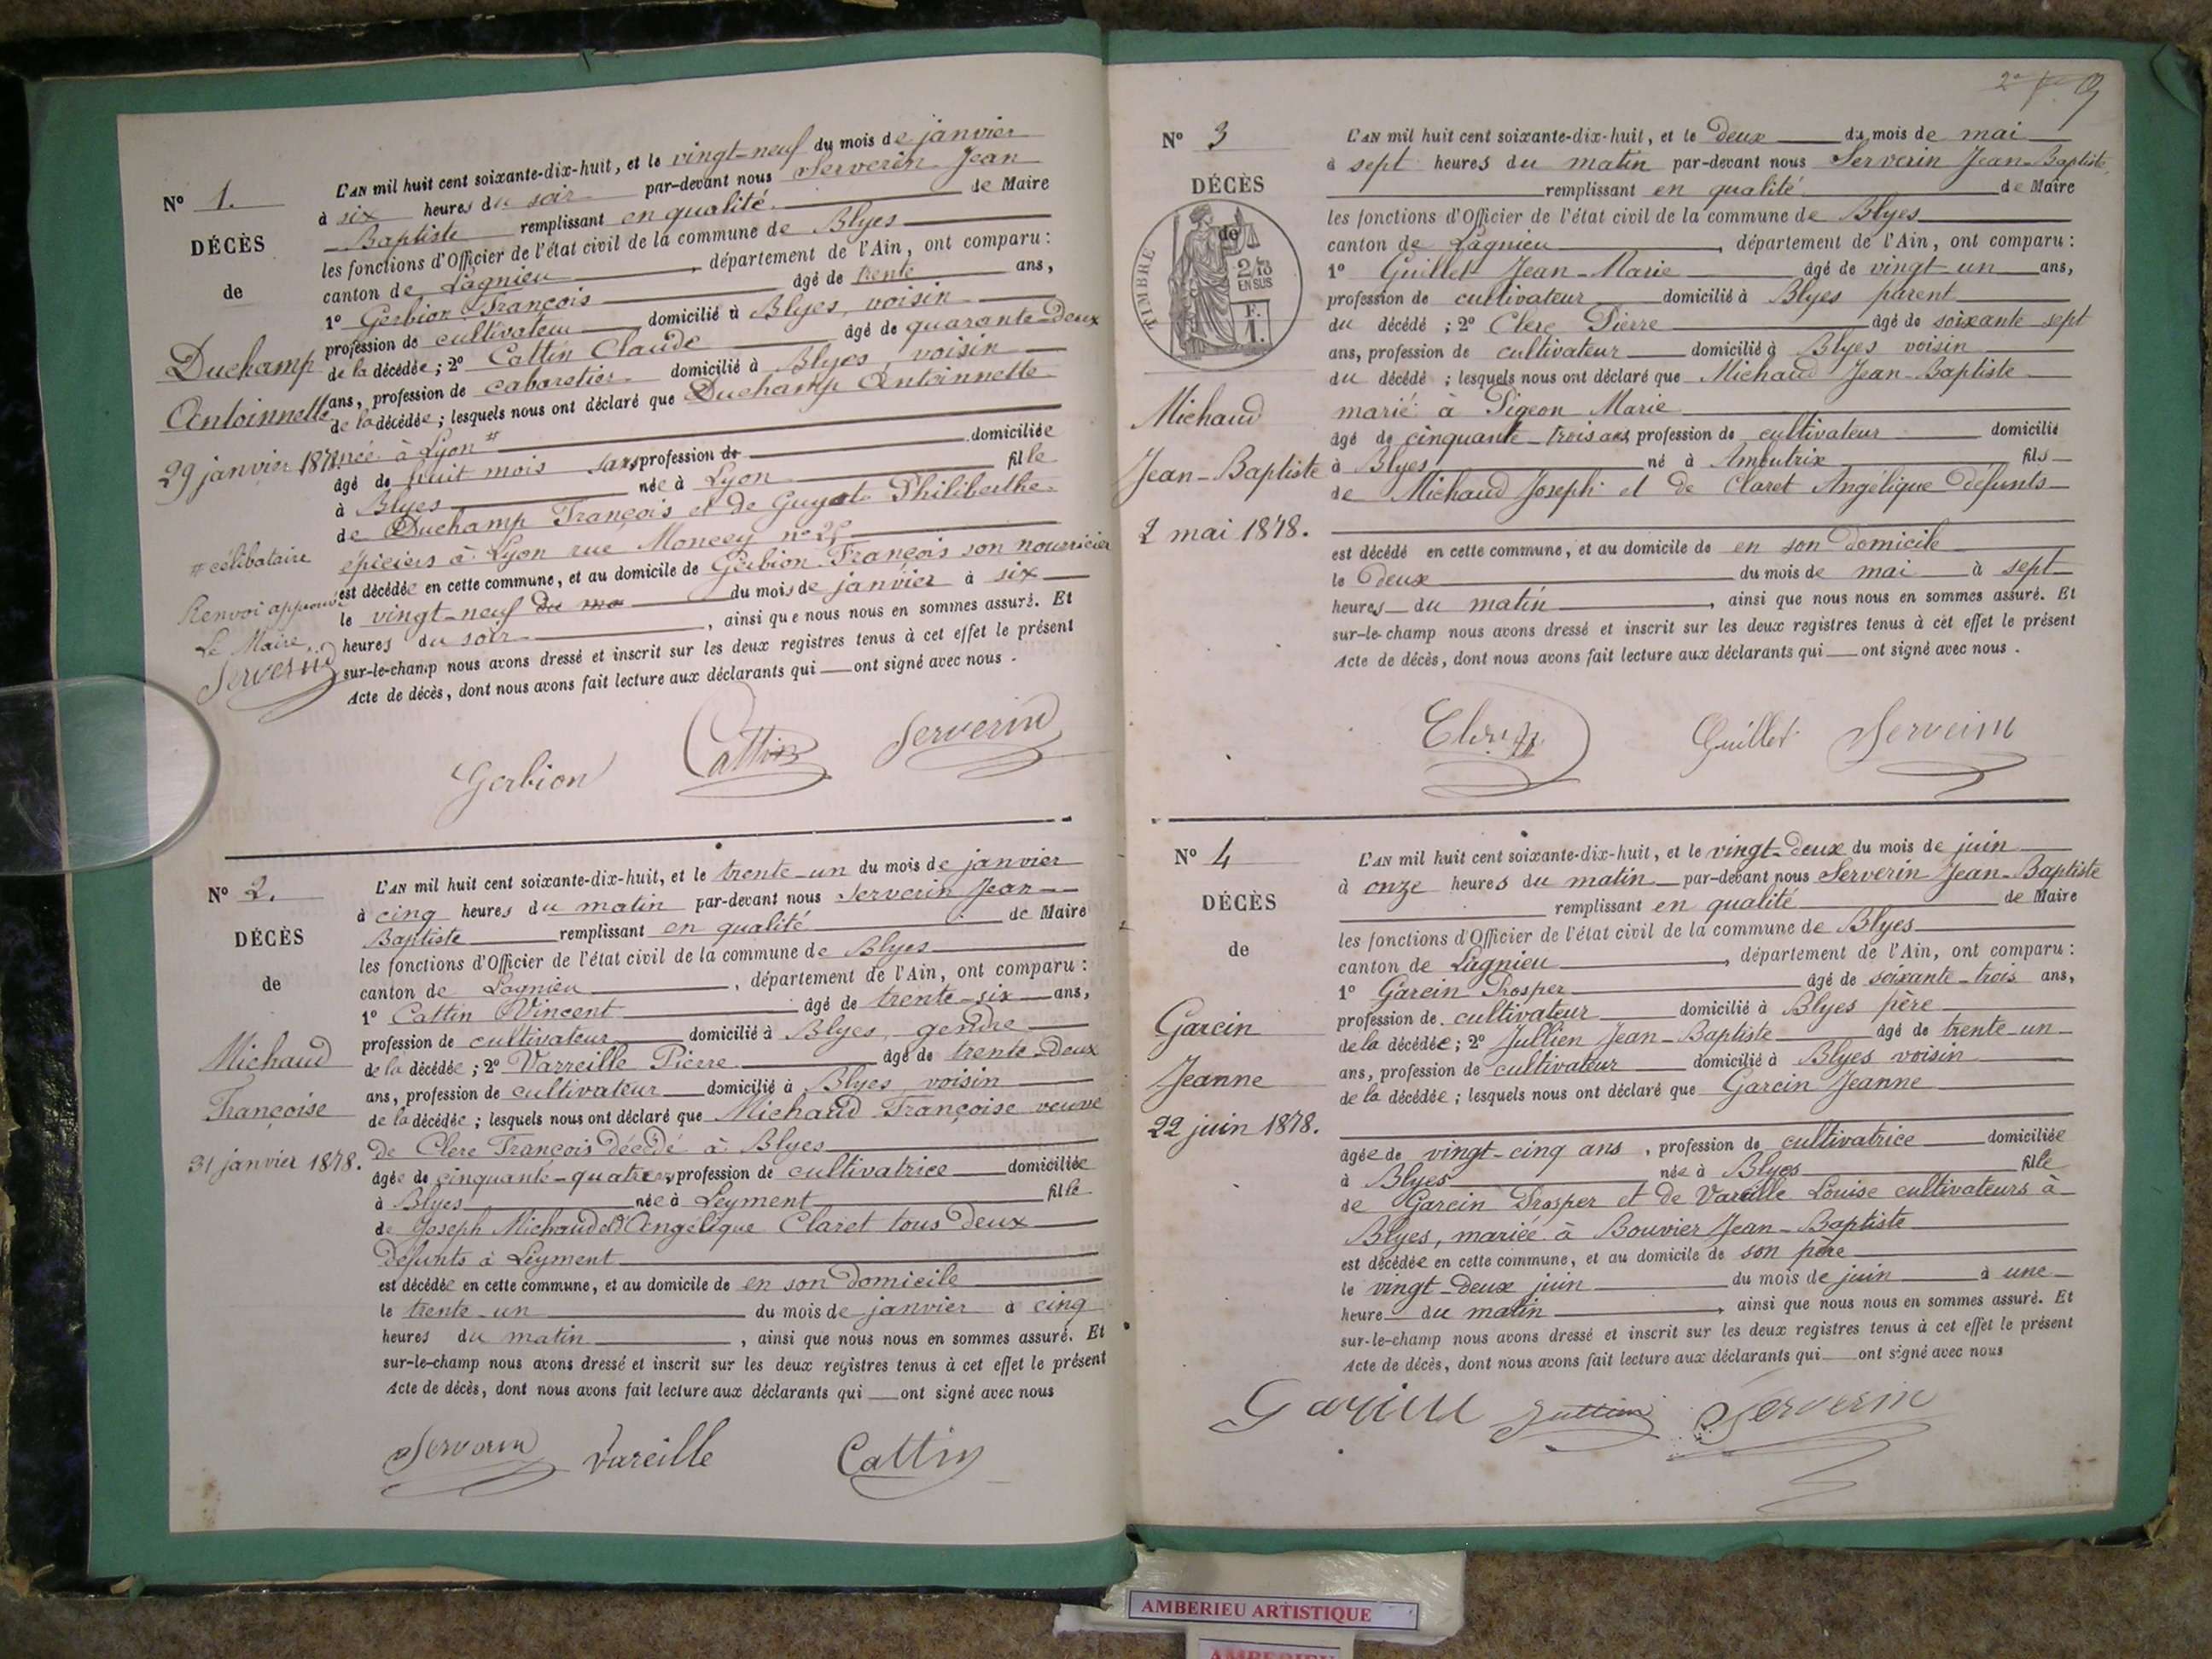 L'AN mil huit cent soixante-dix-huit, et le vingt-neuf du mois de janvier
à six heures du soir par-devant nous Serverin Jean
Baptiste remplissant en qualité de Maire
les fonctions d'Officier de l'état civil de la commune de Blyes
canton de Lagnieu, département de l'Ain, ont comparu :
1º Gerbion François âgé de trente ans,
profession de cultivateur domicilié à Blyes, voisin
de la décédée ; 2º Cattin Claude âgé de quarante-deux
ans, profession de cabaretier domicilié à Blyes, voisin
de la décédée ; lesquels nous ont déclaré que Duchamp Antoinnette
née à Lyon #
âgé de huit mois sans profession de domiciliée
à Blyes née à Lyon fille
de Duchamp François et de Guyot Philiberthe
épiciers à Lyon rue Moncey nº
est décédée en cette commune, et au domicile de Gerbion François son nourricier
le vingt-neuf du mo du mois de janvier à six
heures du soir, ainsi que nous nous en sommes assuré. Et
sur-le-champ nous avons dressé et inscrit sur les deux registres tenus à cet effet le présent
Acte de décès, dont nous avons fait lecture aux déclarants qui ont signé avec nous.
Nº 1.
DÉCÈS
de
Duchamp
Antoinnette
29 janvier 1878.
# célibataire
Renvoi approuvé
Le Maire,
Serverin
Gerbion Cattin Serverin
Nº 2.
DÉCÈS
de
Michaud
Françoise
31 janvier 1878.
L'AN mil huit cent soixante-dix-huit, et le trente-un du mois de janvier
à cinq heures du matin par-devant nous Serverin Jean
Baptiste remplissant en qualité de Maire
les fonctions d'Officier de l'état civil de la commune de Blyes
canton de Lagnieu, département de l'Ain, ont comparu :
1º Cattin Vincent âgé de trente-six ans,
profession de cultivateur domicilié à Blyes, gendre
de la décédée ; 2º Varreille Pierre âgé de trente-deux
ans, profession de cultivateur domicilié à Blyes voisin
de la décédée ; lesquels nous ont déclaré que Michaud Françoise veuve
de Clerc François décédé à Blyes
âgée de cinquante-quatre ans, profession de cultivatrice domiciliée
à Blyes née à Leyment fille
de Joseph Michaud et d'Angélique Claret tous deux
défunts à Leyment
est décédée en cette commune, et au domicile de en son domicile
le trente-un du mois de janvier à cinq
heures du matin, ainsi que nous nous en sommes assuré. Et
sur-le-champ nous avons dressé et inscrit sur les deux registres tenus à cet effet le présent
Acte de décès, dont nous avons fait lecture aux déclarants qui ont signé avec nous
Serverin Vareille Cattin
Nº 3
DÉCÈS
de
TIMBRE
2/10
EN SUS
F.
1.
Michaud
Jean-Baptiste
2 mai 1878.
L'AN mil huit cent soixante-dix-huit, et le deux du mois de mai
à sept heures du matin par-devant nous Serverin Jean-Baptiste
remplissant en qualité de Maire
les fonctions d'Officier de l'état civil de la commune de Blyes
canton de Lagnieu, département de l'Ain, ont comparu :
1º Guillet Jean-Marie âgé de vingt-un ans,
profession de cultivateur domicilié à Blyes parent
du décédé ; 2º Clerc Pierre âgé de soixante-sept
ans, profession de cultivateur domicilié à Blyes voisin
du décédé ; lesquels nous ont déclaré que Michaud Jean-Baptiste
marié à Pigeon Marie
âgé de cinquante-trois ans, profession de cultivateur domicilié
à Blyes né à Ambutrix fils
de Michaud Joseph et de Claret Angélique défunts
est décédé en cette commune, et au domicile de en son domicile
le deux du mois de mai à sept
heures du matin, ainsi que nous nous en sommes assuré. Et
sur-le-champ nous avons dressé et inscrit sur les deux registres tenus à cet effet le présent
Acte de décès, dont nous avons fait lecture aux déclarants qui ont signé avec nous.
Guillet Serverin
Nº 4
DÉCÈS
de
Garcin
Jeanne
22 juin 1878.
L'AN mil huit cent soixante-dix-huit, et le vingt-deux du mois de juin
à onze heures du matin par-devant nous Serverin Jean-Baptiste
remplissant en qualité de Maire
les fonctions d'Officier de l'état civil de la commune de Blyes
canton de Lagnieu, département de l'Ain, ont comparu :
1º Garcin Prosper âgé de soixante-trois ans,
profession de cultivateur domicilié à Blyes père
de la décédée ; 2º Jullien Jean-Baptiste âgé de trente-un
ans, profession de cultivateur domicilié à Blyes voisin
de la décédée ; lesquels nous ont déclaré que Garcin Jeanne
âgée de vingt-cinq ans, profession de cultivatrice domiciliée
à Blyes née à Blyes fille
de Garcin Prosper et de Vareille Louise cultivateurs à
Blyes, mariée à Bouvier Jean-Baptiste
est décédée en cette commune, et au domicile de son père
le vingt-deux juin du mois de juin à une
heure du matin, ainsi que nous nous en sommes assuré. Et
sur-le-champ nous avons dressé et inscrit sur les deux registres tenus à cet effet le présent
Acte de décès, dont nous avons fait lecture aux déclarants qui ont signé avec nous
Jullien Serverin
AMBERIEU ARTISTIQUE
AMBERIEU